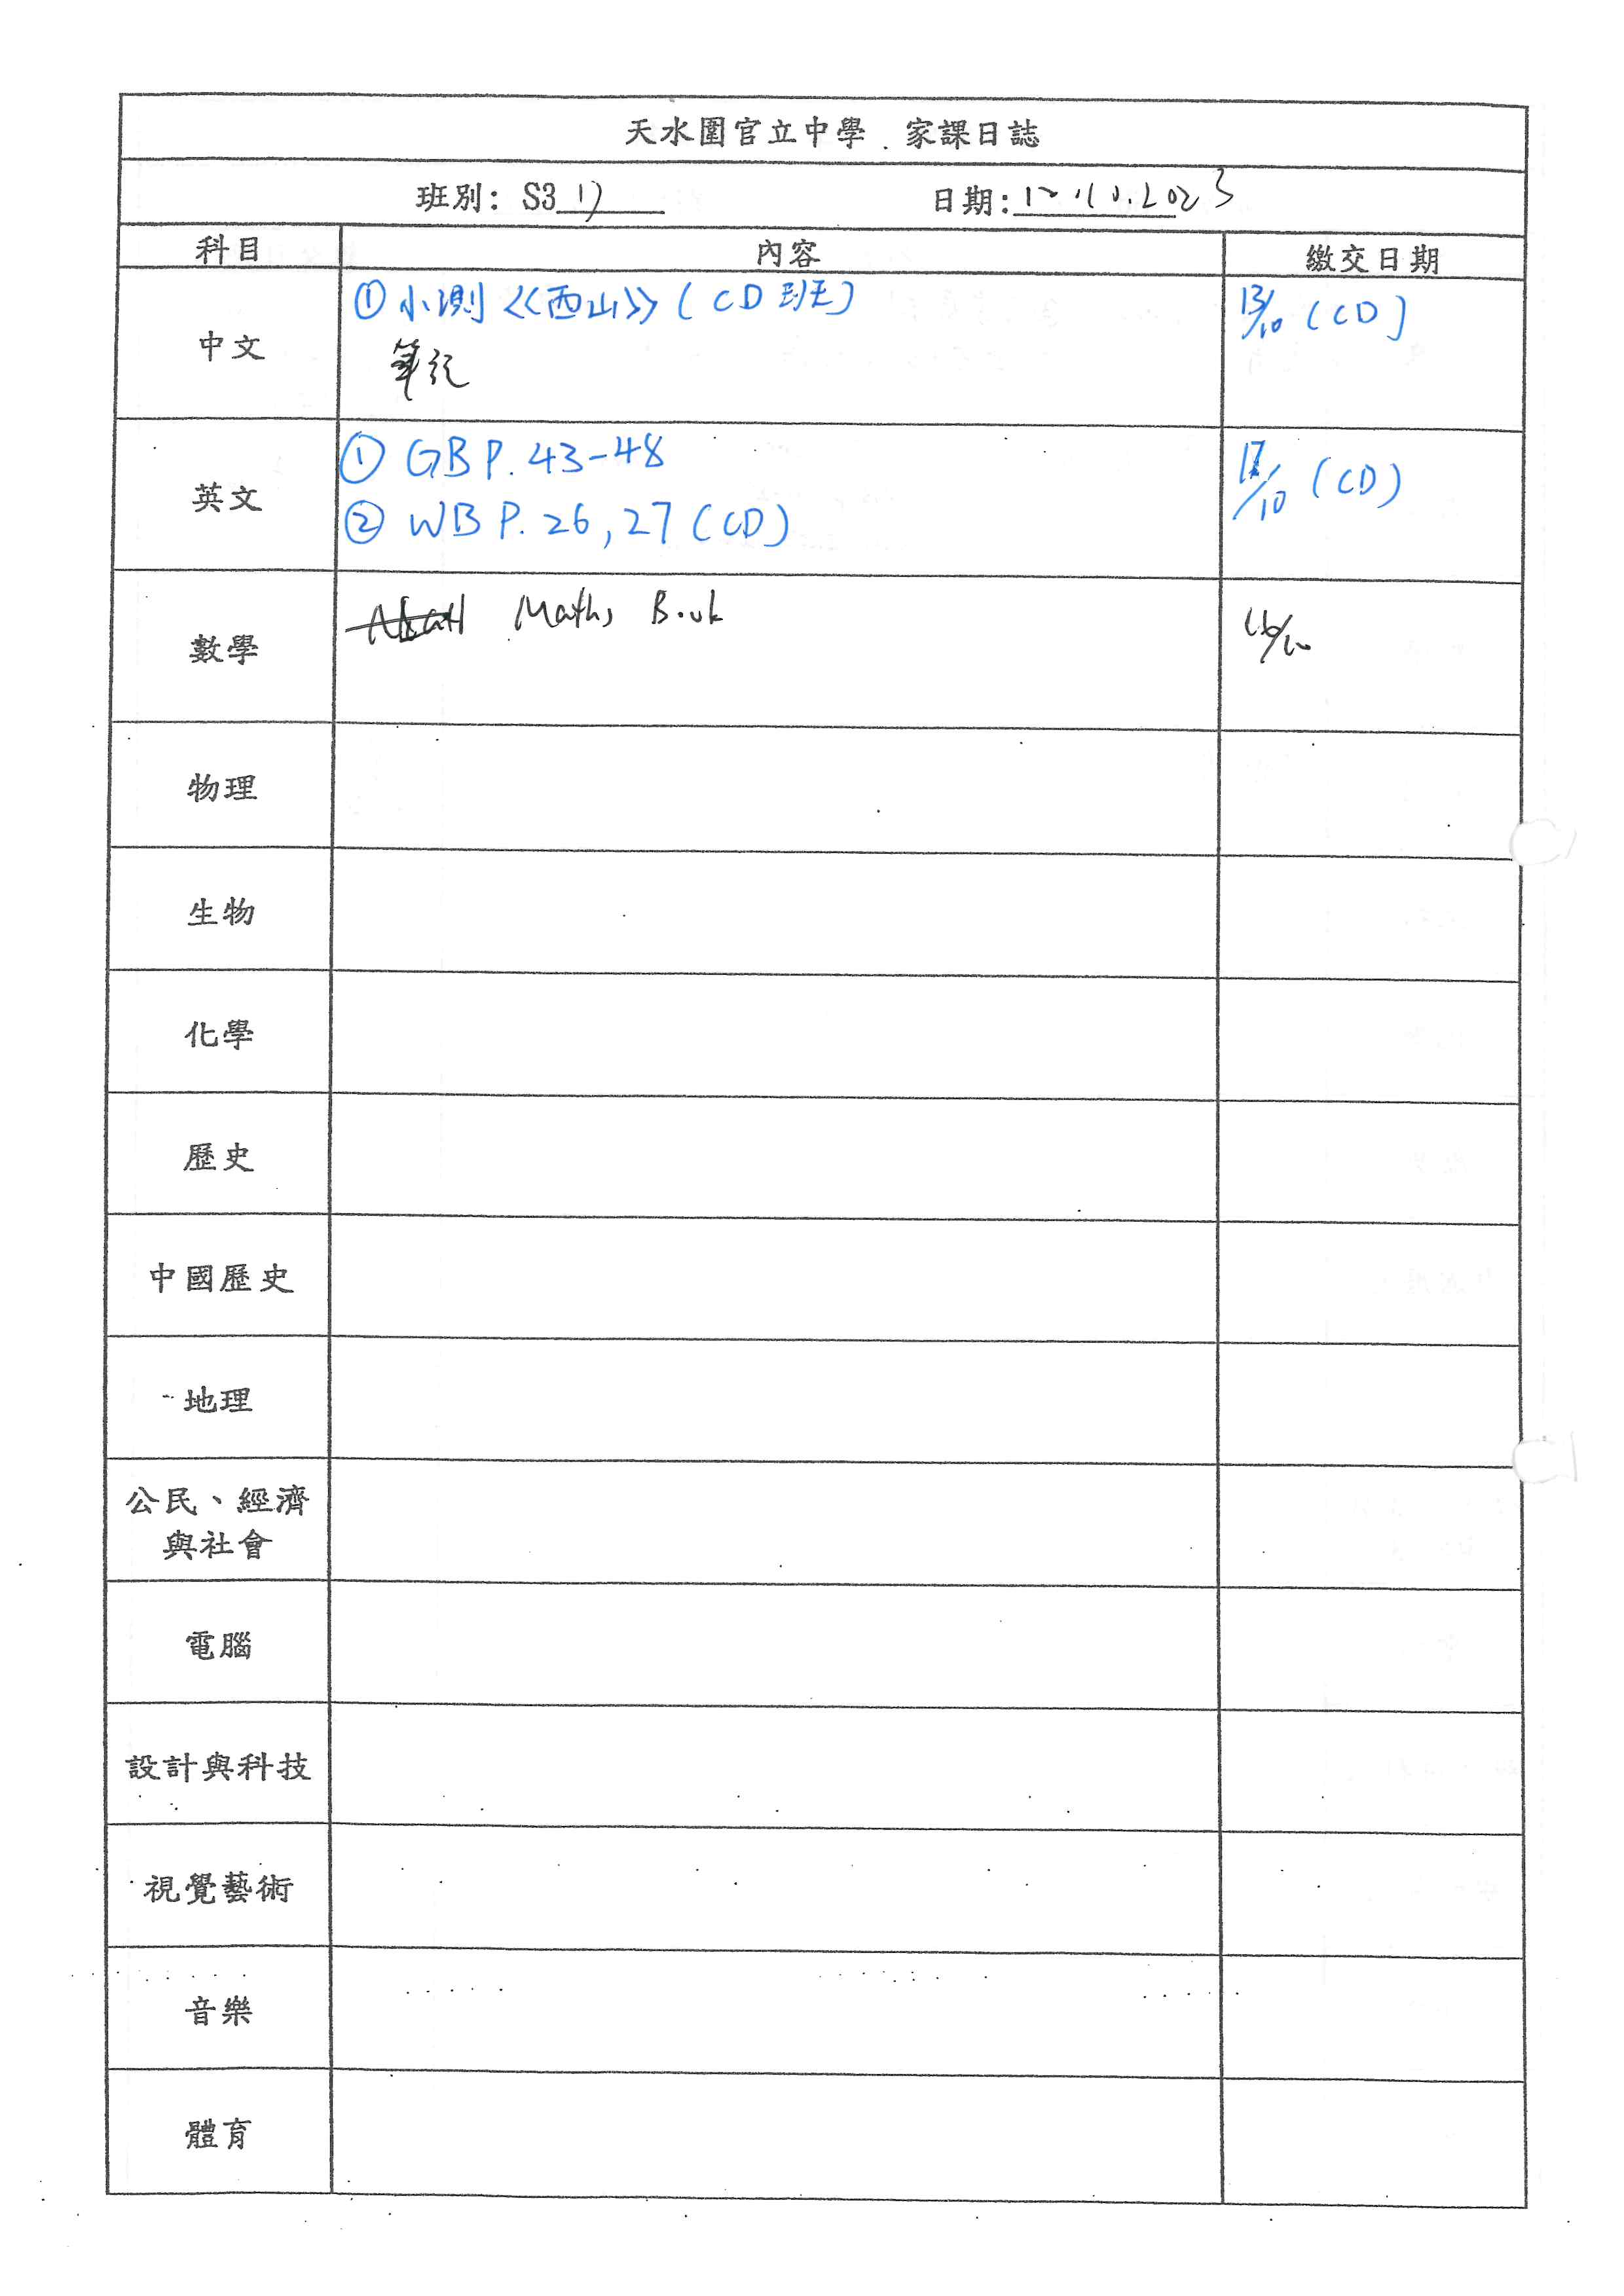 天水圍官立中學．家課日誌
班別: S3 D 日期: 12.10.2023
科目 內容 繳交日期
中文 ① 小測《西山》(CD班) 13/10 (CD)
筆記
英文 ① GB P.43-48 17/10 (CD)
② WB P.26,27 (CD)
數學 Maths Book 16/10
物理
生物
化學
歷史
中國歷史
地理
公民、經濟
與社會
電腦
設計與科技
視覺藝術
音樂
體育